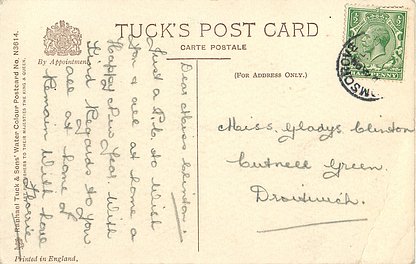 TUCK'S POST CARD
CARTE POSTALE
By Appointment.
(FOR ADDRESS ONLY.)
Dear Miss Clinton.
Just a P.C. to Wish
you & all at home a
Happy New Year. With
Kind Regards to you
all at home &
Remain With love
Florrie
Miss. Gladys Clinton
Cutnall Green.
Droitwich.
Raphael Tuck & Sons' Water Colour Postcard No. N3614.
TO THEIR MAJESTIES THE KING & QUEEN.
Printed in England.
BROMSGROVE
HALF PENNY